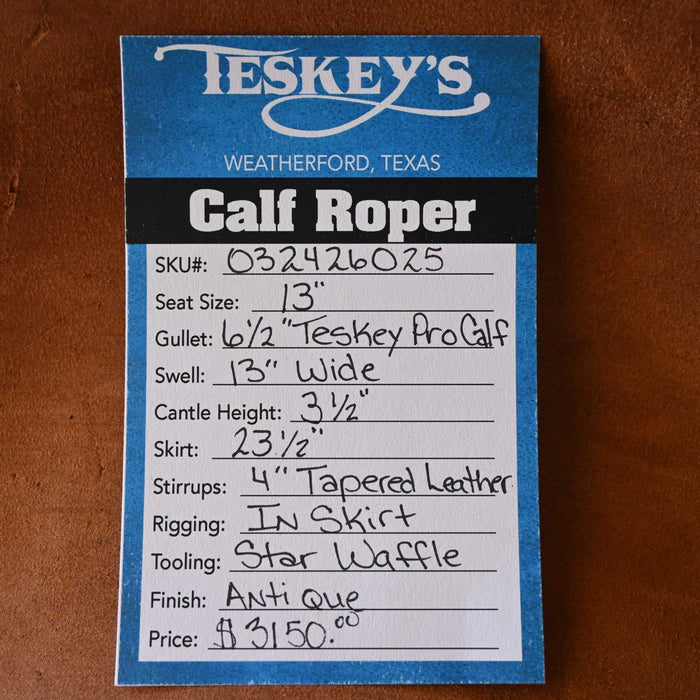 TESKEY'S
WEATHERFORD, TEXAS
Calf Roper
SKU#: 032426025
Seat Size: 13"
Gullet: 6 1/2" Teskey Pro Calf
Swell: 13" Wide
Cantle Height: 3 1/2"
Skirt: 23 1/2"
Stirrups: 4" Tapered Leather
Rigging: In Skirt
Tooling: Star Waffle
Finish: Antique
Price: $3150.00